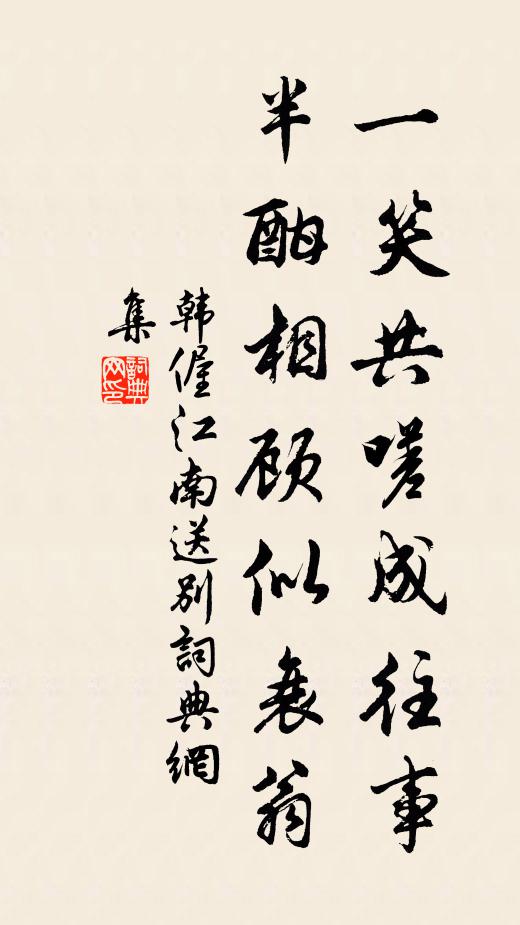 一笑共嗟成往事
半酣相顾似衰翁
韩偓江南送別詞典網
集
詞典网印